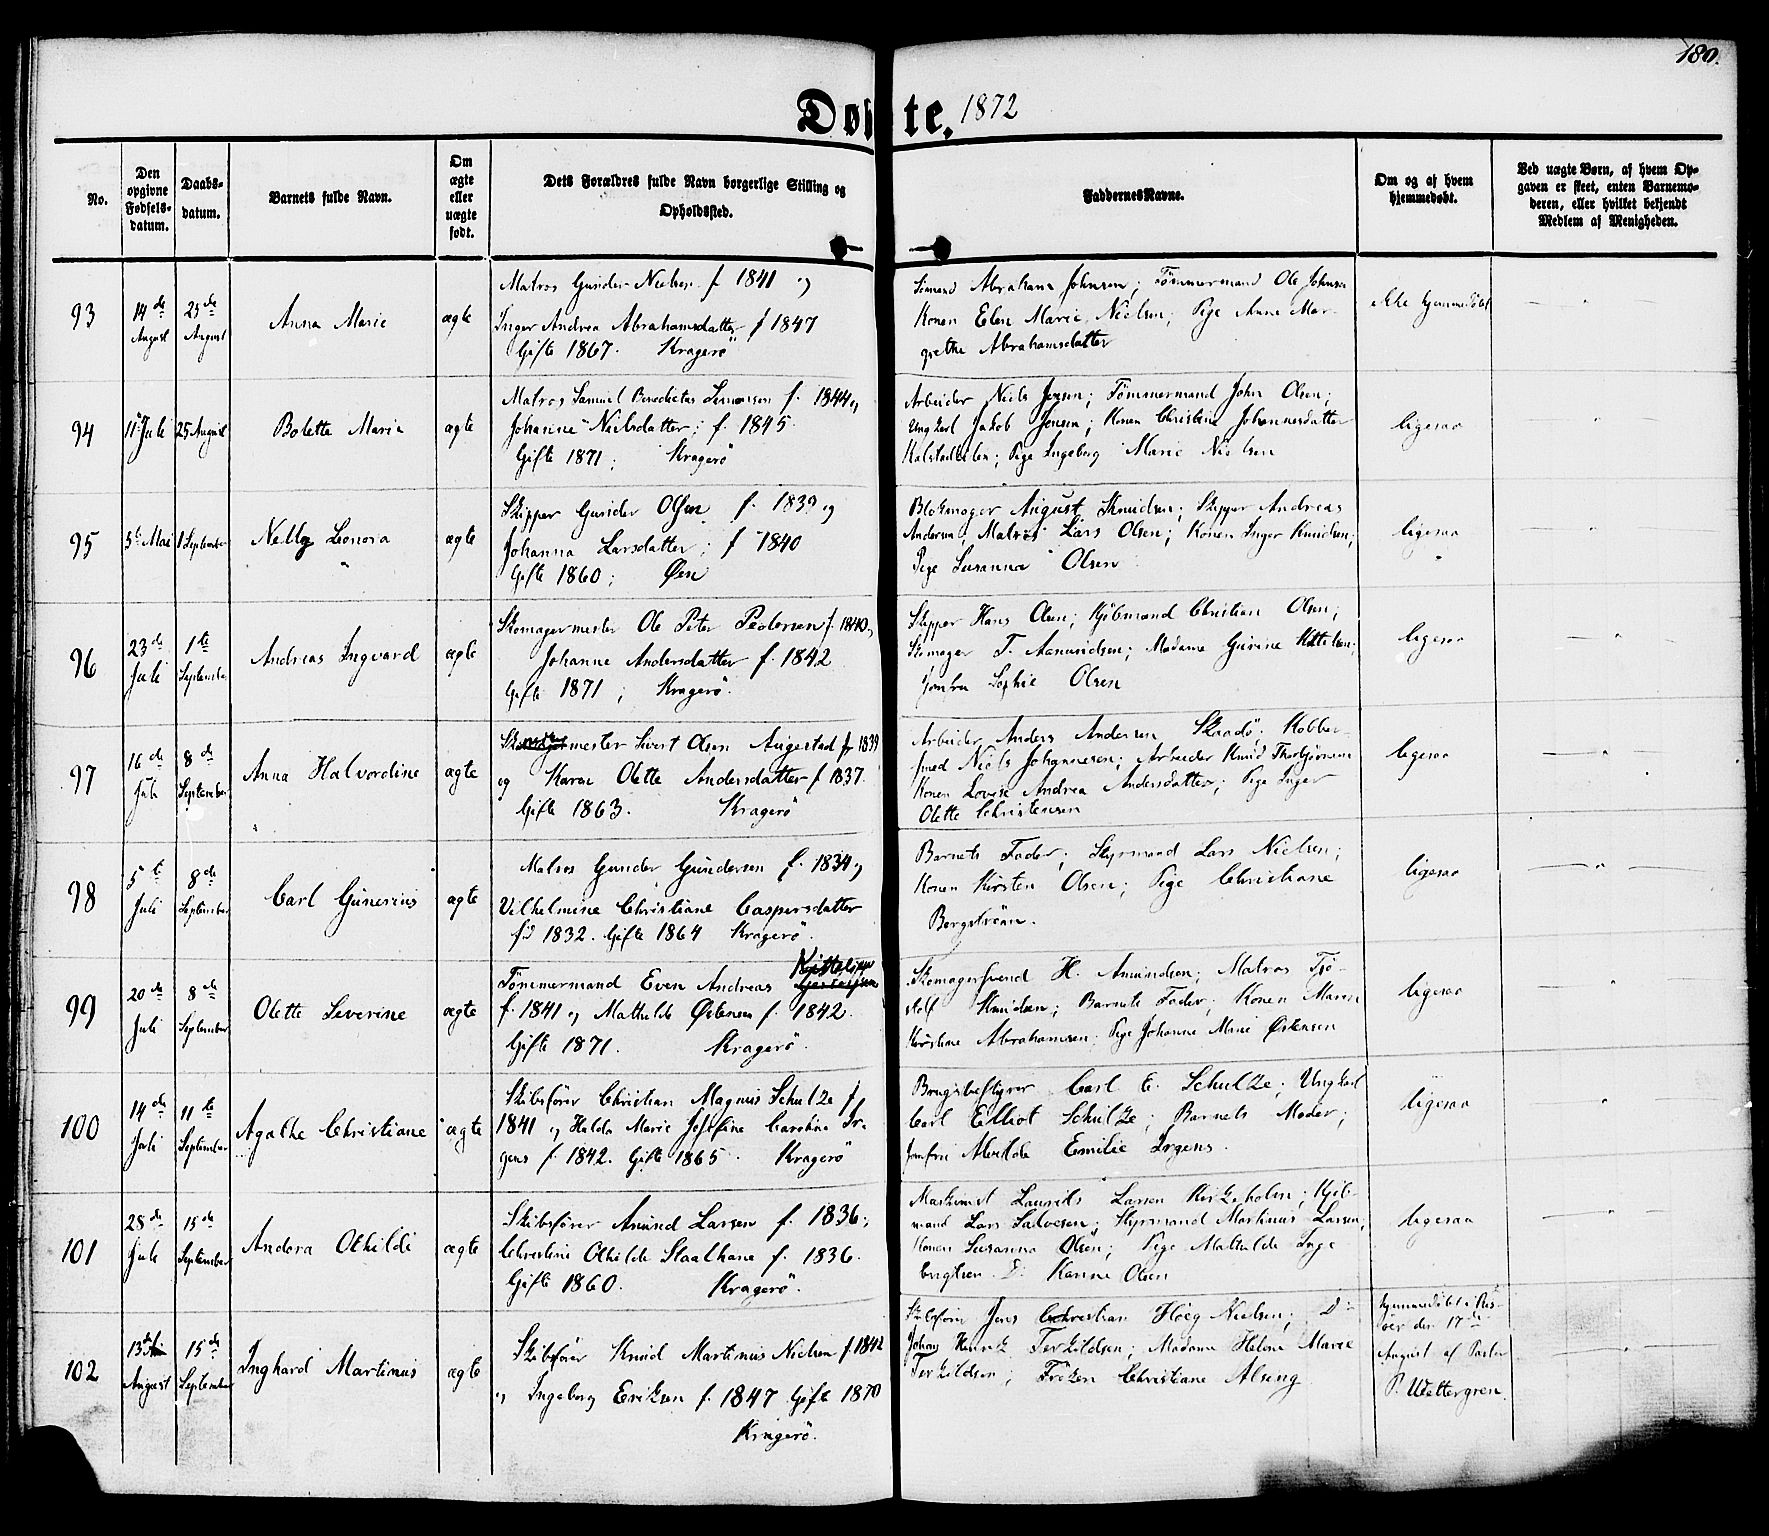 180.
Døbte, 1872
No.
Den opgivne Fødselsdatum.
Daabsdatum.
Barnets fulde Navn.
Om ægte eller uægte født.
Dets Forældres fulde Navn borgerlige Stilling og Opholdssted.
Faddernes Navne.
Om og af hvem hjemmedøbt.
Ved uægte Børn, af hvem Opgaven er skeet, enten Barnemoderen, eller hvilket bekjendt Medlem af Menigheden.
93
14de August
25de August
Anna Marie
ægte
Matros Gunder Nielsen f 1841 og
Inger Andrea Abrahamsdatter f 1847
Gifte 1867. Kragerö
Sömand Abraham Johnsen; Tömmermand Ole Johnsen
Konen Elen Marie Nielsen; Pige Anne Mar-
grethe Abrahamsdatter
ikke hjemmedöbt
94
11te Juli
25 August
Bolette Marie
ægte
Matros Samuel Benedictus Simonsen f. 1844 og
Johanne Nielsdatter; f. 1845
Gifte 1871; Kragerö
Arbeider Niels Jensen; Tömmermand John Olsen;
Ungkarl Jakob Jensen; Konen Christine Johannesdatter
Kalstadkilen; Pige Ingeborg Marie Nielsen
ligesaa
95
5te Mai
1 September
Nelly Leonora
ægte
Skipper Gunder Olsen f. 1839 og
Johanna Larsdatter; f 1840
Gifte 1860; Øen
Blokmager August Knudsen; Skipper Andreas
Andersen; Matros Lars Olsen; Konen Inger Knudsen;
Pige Susanna Olsen
ligesaa
96
23de Juli
1te September
Andreas Ingvard
ægte
Skomagermester Ole Peter Pedersen f. 1840 og
Johanne Andersdatter f. 1842
Gifte 1871; Kragerö.
Skipper Hans Olsen; Kjöbmand Christian Olsen;
Skomager T. Aamundsen; Madame Gurine Kittelsen;
Jomfru Sophie Olsen
ligesaa
97
16de Juli
8de September
Anna Halvordine
ægte
mester Sivert Olsen Augestad f 1839
og Karen Olette Andersdatter f 1837.
Gifte 1863. Kragerö
Arbeider Anders Andersen Skaadö; Kobber-
smed Niels Johannesen; Arbeider Knud Thorbjörnsen
Konen Lovise Andrea Andersdatter; Pige Inger
Olette Christensen
ligesaa
98
5te Juli
8de September
Carl Gunerius
ægte
Matros Gunder Gundersen f. 1834 og
Vilhelmine Christiane Caspersdatter
fd 1832. Gifte 1864 Kragerö.
Barnets Fader; Styrmand Lars Nielsen;
Konen Kirsten Olsen; Pige Christiane
Bergström.
ligesaa
99
20de Juli
8de September
Olette Severine
ægte
Kittelsen
Tömmermand Even Andreas
f. 1841 og Mathilde Östensen f. 1842.
Gifte 1871. Kragerö.
Skomagersvend H. Amundsen; Matros Tjö-
stolf Knudsen; Barnets Fader; Konen Maren
Kirstine Abrahamsen; Pige Johanne Marie Östensen
ligesaa
100
14de Juli
11te September
Agathe Christiane
ægte
Skibsförer Christian Magnus Schultze f.
1841 og Halda Marie Josefine Carolina Ir-
gens f. 1842. Gifte 1865. Kragerö
Brugsbestyrer Carl E. Schultze; Ungkarl
Carl Elliot Schultze; Barnets Moder;
Jomfru Alvilde Emilie Irgens.
ligesaa
101
28de Juli
15de September
Andora Othilde
ægte
Skibsförer Amund Larsen f. 1836;
Christine Othilde Staalhane f. 1836.
Gifte 1860. Kragerö.
Maskinist Laurits Larsen Kirkeholm; Kjöb-
mand Lars Salvesen; Styrmand Martinus Larsen;
Konen Susanna Olsen; Pige Mathilde Inge
brigtsen. Do Karine Olsen
ligesaa
102
13de August
15de September
Inghard Martinius
ægte
Skibsförer Knud Martinius Nielsen f 1842
og Ingeborg Eriksen f. 1847 Gifte 1870
Kragerö.
Skibsförer Jens Christian Höeg Nielsen; Do
Johan Henrik Terkildsen; Madame Helene Marie
Terkildsen; Fröken Christiane Alsing
hjemmedöbt i Ris-
öer den 17de
August af Pastor
P. Wettergren.